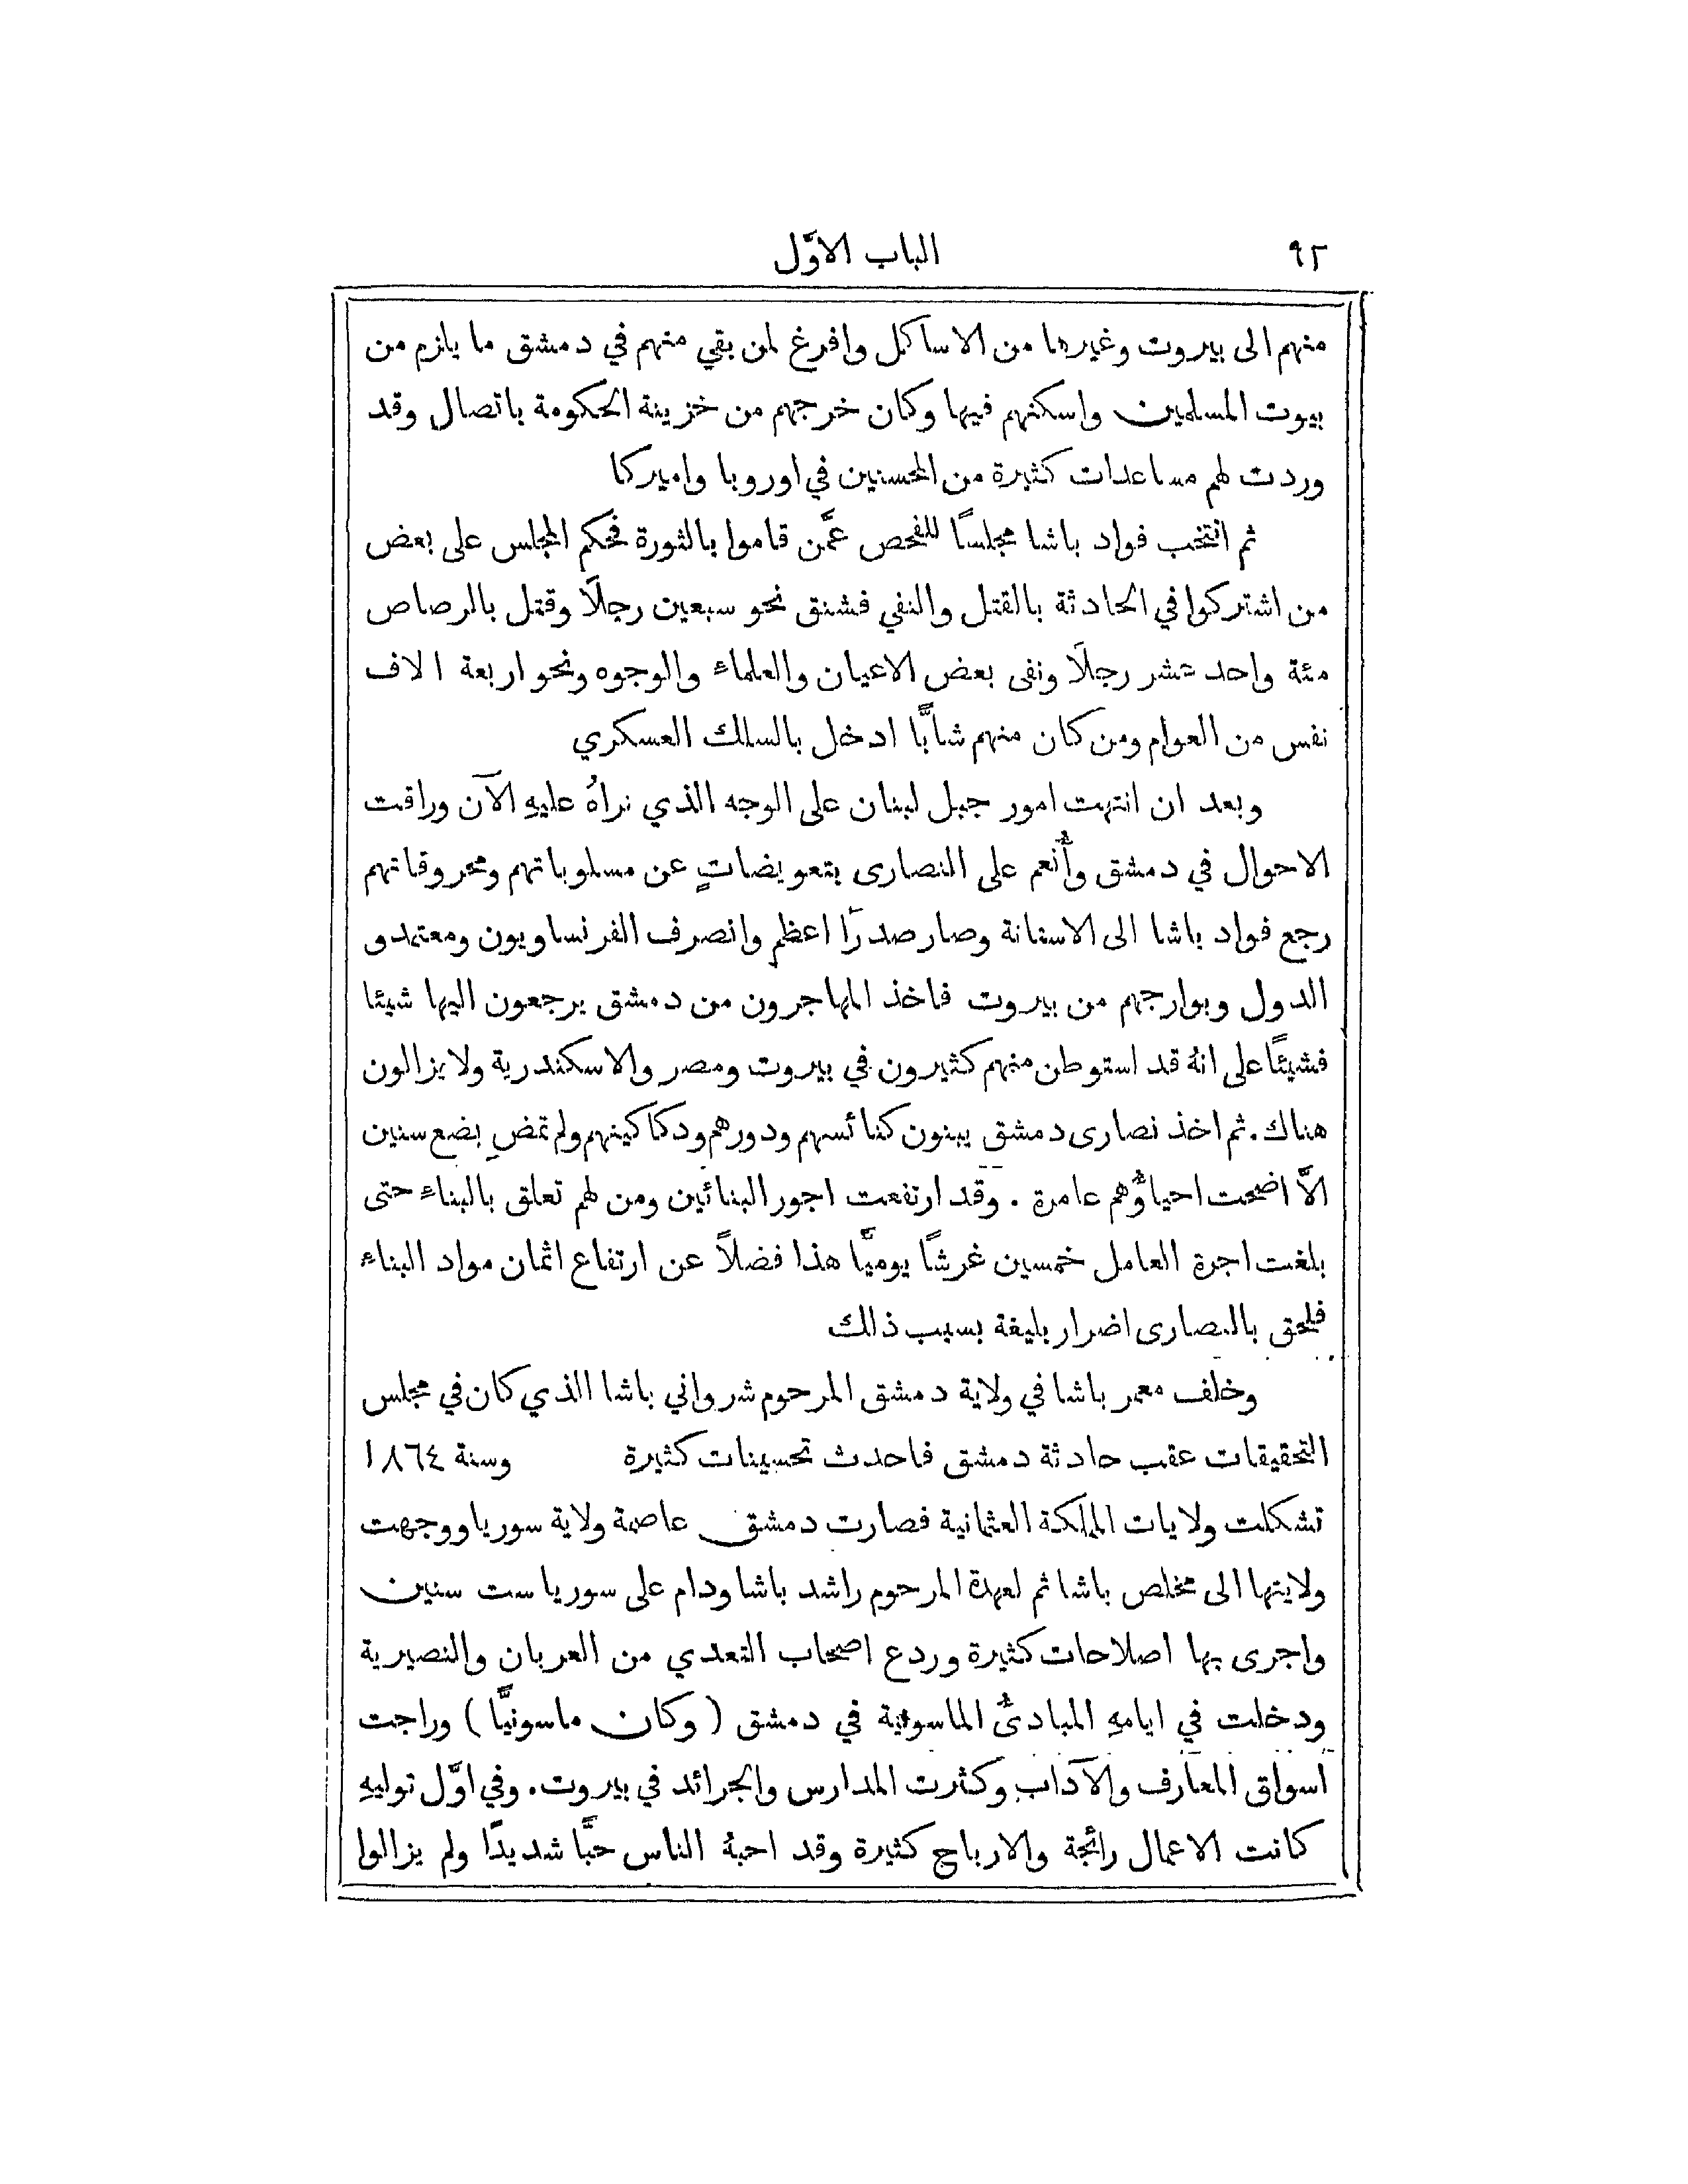 ٩٢ الباب الاوَّل
منهم الى بيروت وغيرها من الاساكل وافرغ لمن بقي منهم في دمشق ما يلزم من
بيوت المسلمين واسكنهم فيها وكان خرجهم من خزينة الحكومة باتصال وقد
وردت لهم مساعدات كثيرة من المحسنين في اوروبا واميركا
ثم انتخب فواد باشا مجلسًا للفحص عمَّن قاموا بالثورة فحكم المجلس على بعض
من اشتركوا في الحادثة بالقتل والنفي فشنق نحو سبعين رجلًا وقتل بالرصاص
مئة واحد عشر رجلًا ونفى بعض الاعيان والعلماء والوجوه ونحو اربعة الاف
نفس من العوام ومن كان منهم شابًّا ادخل بالسلك العسكري
وبعد ان انتهت امور جبل لبنان على الوجه الذي نراهُ عليهِ الآن وراقت
الاحوال في دمشق وأُنعم على النصارى بتعويضاتٍ عن مسلوباتهم ومحروقاتهم
رجع فواد باشا الى الاستانة وصار صدرًا اعظم وانصرف الفرنساويون ومعتمدو
الدول وبوارجهم من بيروت فاخذ المهاجرون من دمشق يرجعون اليها شيئا
فشيئًا على انهُ قد استوطن منهم كثيرون في بيروت ومصر والاسكندرية ولا يزالون
هناك. ثم اخذ نصارى دمشق يبنون كنائسهم ودورهم ودكاكينهم ولم تمضِ بضع سنين
الَّا اضحت احياؤُهم عامرة . وقد ارتفعت اجور البنائين ومن لهم تعلق بالبناء حتى
بلغت اجرة العامل خمسين غرشًا يوميًّا هذا فضلاً عن ارتفاع اثمان مواد البناء
فلحق بالنصارى اضرار بليغة بسبب ذالك
وخلف معمر باشا في ولاية دمشق المرحوم شرواني باشا الذي كان في مجلس
التحقيقات عقب حادثة دمشق فاحدث تحسينات كثيرة وسنة ١٨٦٤
تشكلت ولايات المملكة العثمانية فصارت دمشق عاصمة ولاية سوريا ووجهت
ولايتها الى مخلص باشا ثم لعهدة المرحوم راشد باشا ودام على سوريا ست سنين
واجرى بها اصلاحات كثيرة وردع اصحاب التعدي من العربان والنصيرية
ودخلت في ايامهِ المبادئُ الماسونية في دمشق ( وكان ماسونيًّا ) وراجت
اسواق المعارف والآداب وكثرت المدارس والجرائد في بيروت. وفي اوَّل توليهِ
كانت الاعمال رائجة والارباح كثيرة وقد احبهُ الناس حبًّا شديدًا ولم يزالوا